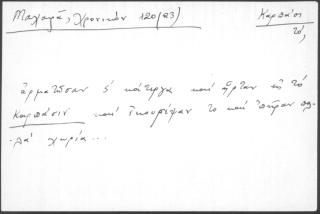 Μαχαιρᾶ, χρονικόν 120 (23)
Καρπάσι
τό,
ἀρματῶσαν 5 κάτεργα καὶ ἦρταν εἰς τό
Καρπάσιν καὶ ἐκουρσέψαν το καὶ ἐπῆραν πολ-
-λά χωρία...